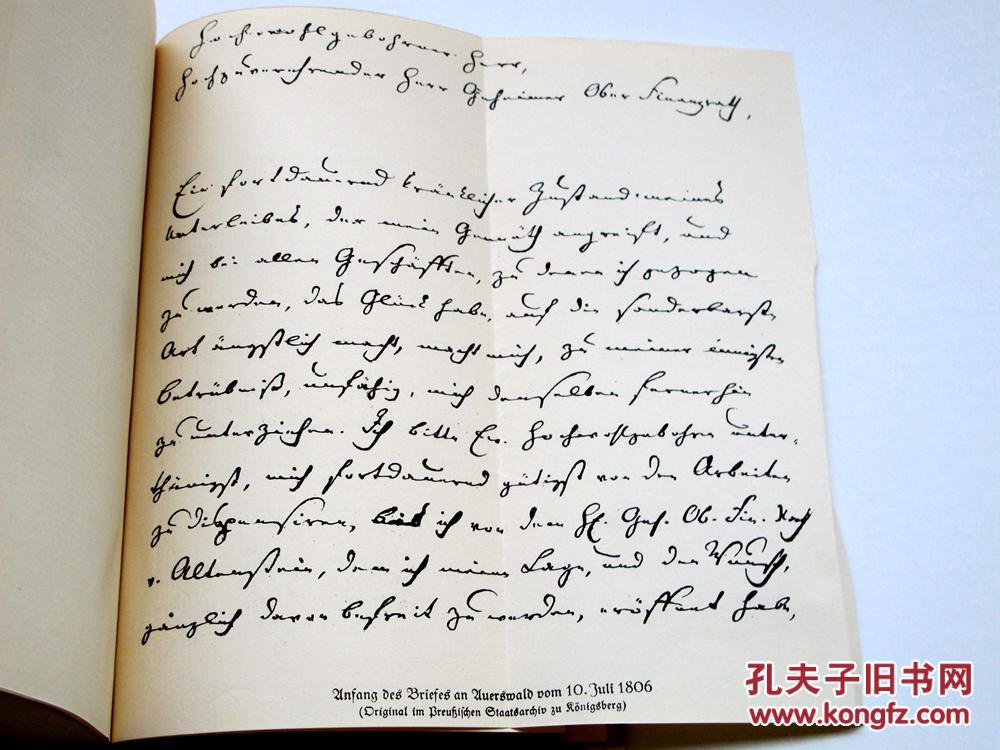 Hochwohlgebohrner Herr,
Hochzuverehrender Herr Geheimer Ober Finanzrath,
Ein fortdauernd kränklicher Zustand meines
Unterleibes, der mein Gemüth angreift, und
mich bei allen Geschäfften, zu denen ich gezogen
zu werden, das Glück habe, auf die sonderbarste
Art ängstlich macht, macht mich, zu meiner innigsten
Betrübniß, unfähig, mich denselben fernerhin
zu unterziehen. Ich bitte Ew. Hochwohlgebohren unter-
thänigst, mich fortdauernd gütigst von den Arbeiten
zu dispensiren, bis ich von dem H. Geh. Ob. Fin. Rath
v. Altenstein, dem ich meine Lage, und den Wunsch,
gänzlich davon befreit zu werden, eröffnet habe,
Anfang des Briefes an Auerswald vom 10. Juli 1806
(Original im Preußischen Staatsarchiv zu Königsberg)
孔夫子旧书网
www.kongfz.com